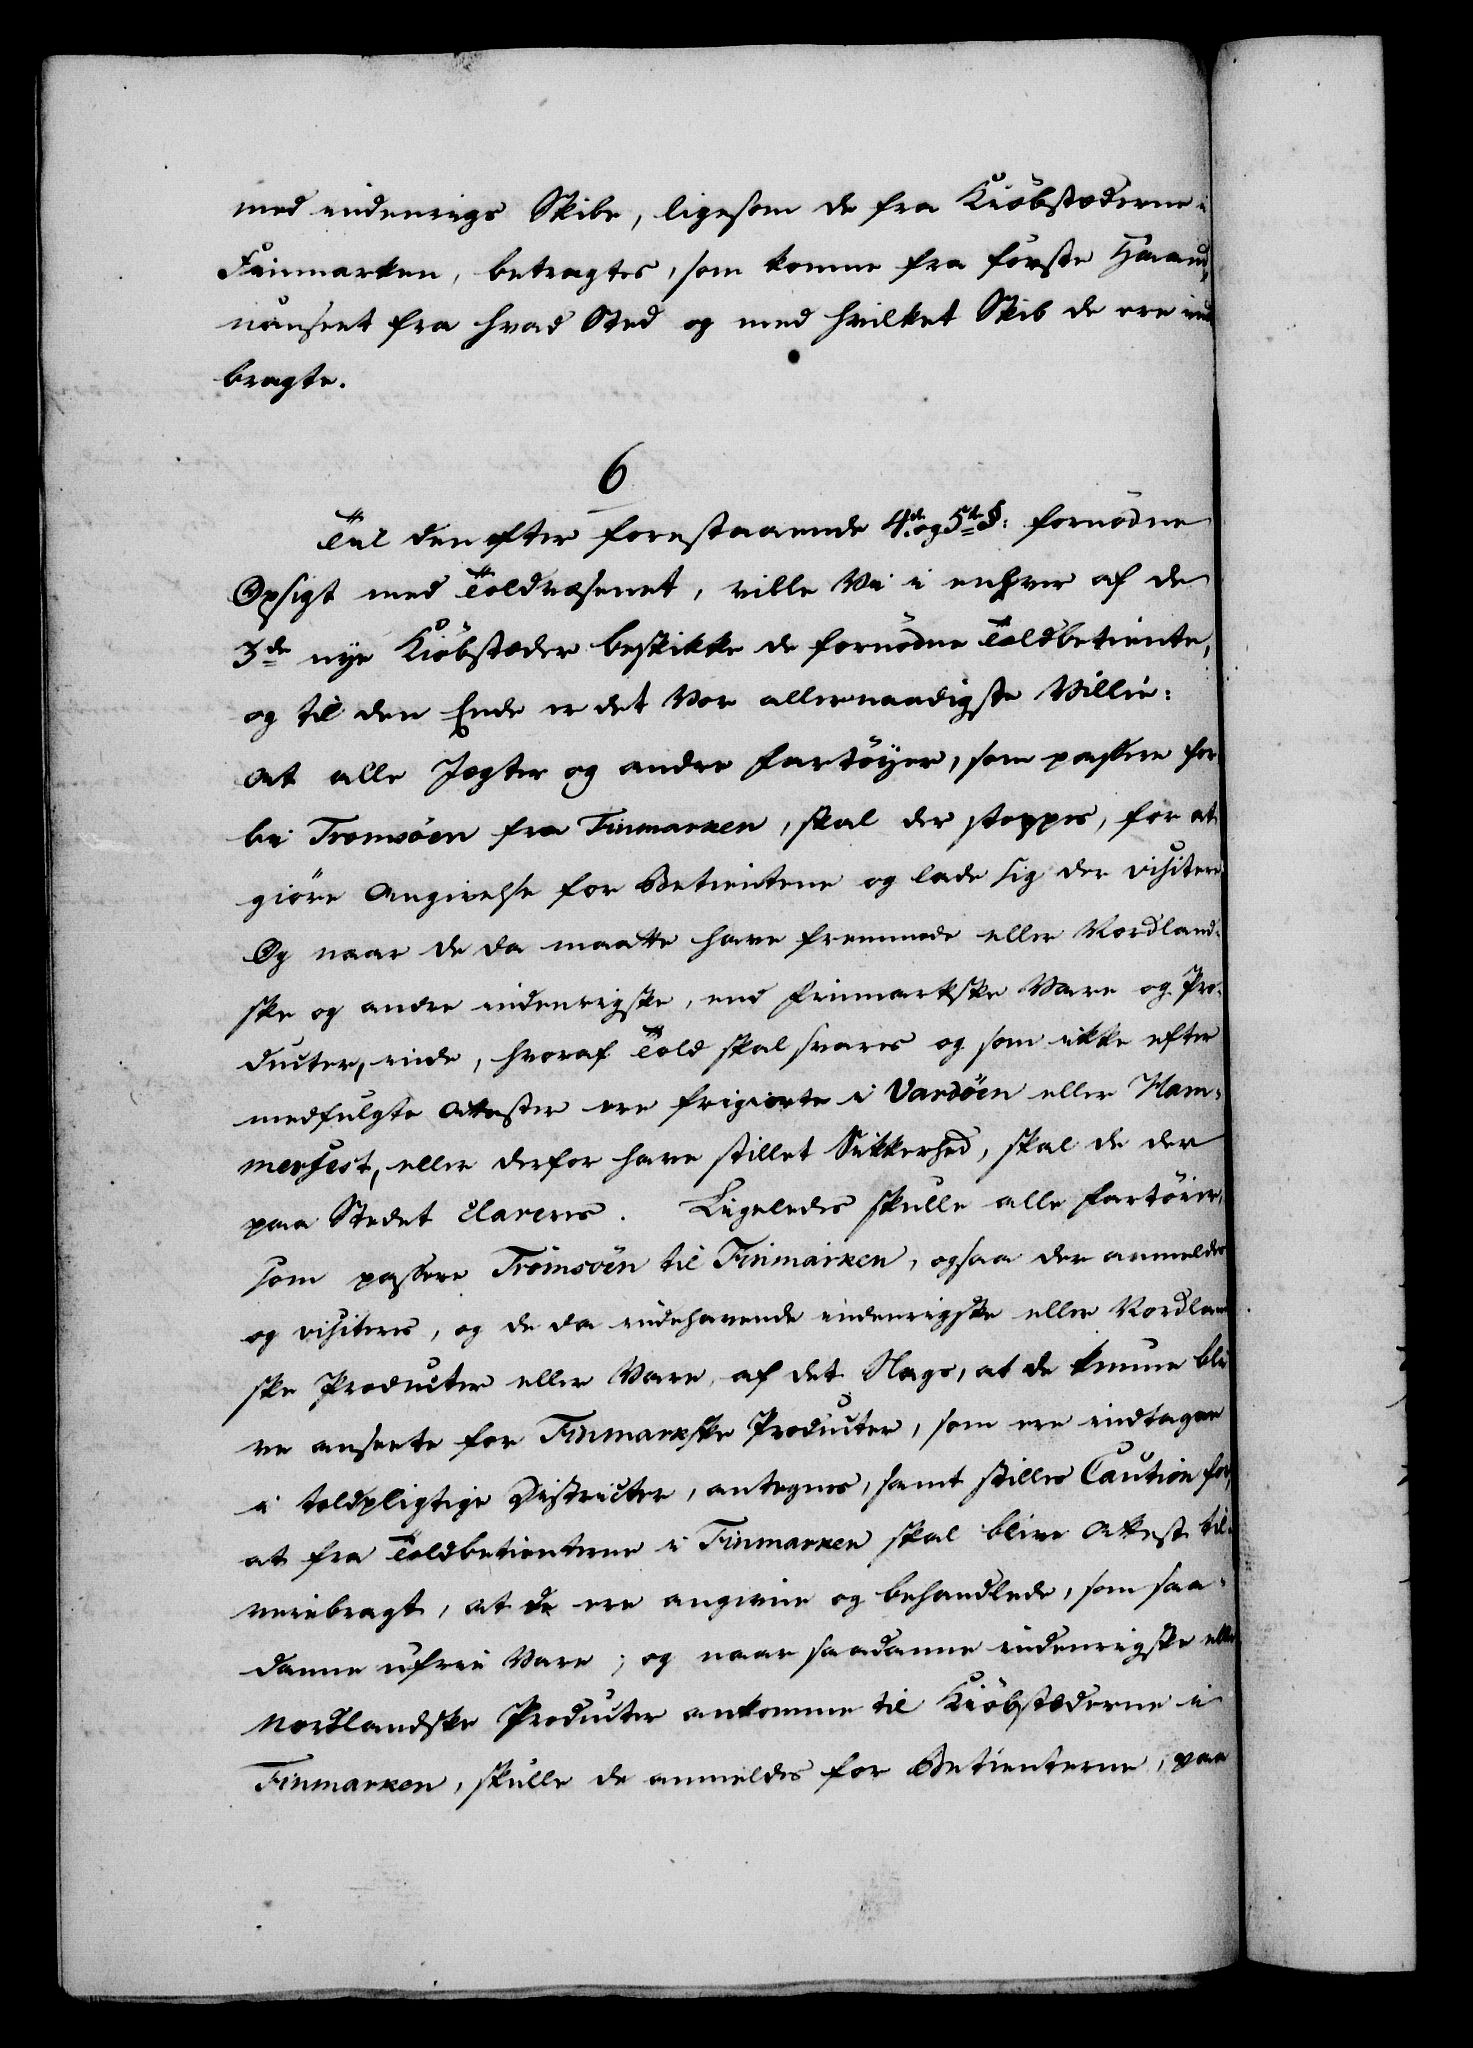 med indenrigs Skibe, ligesom de fra Kiöbstæderne i
Finmarken, betragtes, som komne fra förste Haand,
uanseet fra hvad Sted og med hvilket Skib de ere ind
bragte.
6
Til den efter forestaaende 4de og 5te §: fornödne
Opsigt med Toldvæsenet, ville Vi i enhver af de
3de nye Kiöbstæder beskikke de fornödne Toldbetiente,
og til den Ende er det Vor allernaadigste Villie:
at alle Jægter og andre Fartöyer, som passere for
bi Tromsöen fra Finmarken, skal der stoppes, for at
giöre Angivelse for Betienterne og lade sig der visitere.
Og naar de da maatte have fremmede eller Nordland-
ske og andre indenrigske, end Finmarkske Vare og Pro-
ducter, inde, hvoraf Told skal svares og som ikke efter
medfulgte Attester ere frigiorte i Vardöen eller Ham-
merfest, eller derfor have stillet Sikkerhed, skal de der
paa Stedet clareres. Ligeledes skulle alle Fartöier,
som passere Tromsöen til Finmarken, ogsaa der anmeldes
og visiteres, og de da indehavende indenrigske eller Nordland
ske Producter eller Vare, af det Slags, at de kunne bli
ve ansete for Finmarkske Producter, som ere indtagne
i toldpligtige Districter, antegnes, samt stilles Caution for,
at fra Toldbetienterne i Finmarken skal blive Attest til-
veiebragt, at de ere angivne og behandlede, som saa-
danne ufrie Vare; og naar saadanne indenrigske eller
Nordlandske Producter ankomme til Kiöbstæderne i
Finmarken, skulle de anmeldes for Betienterne, paa